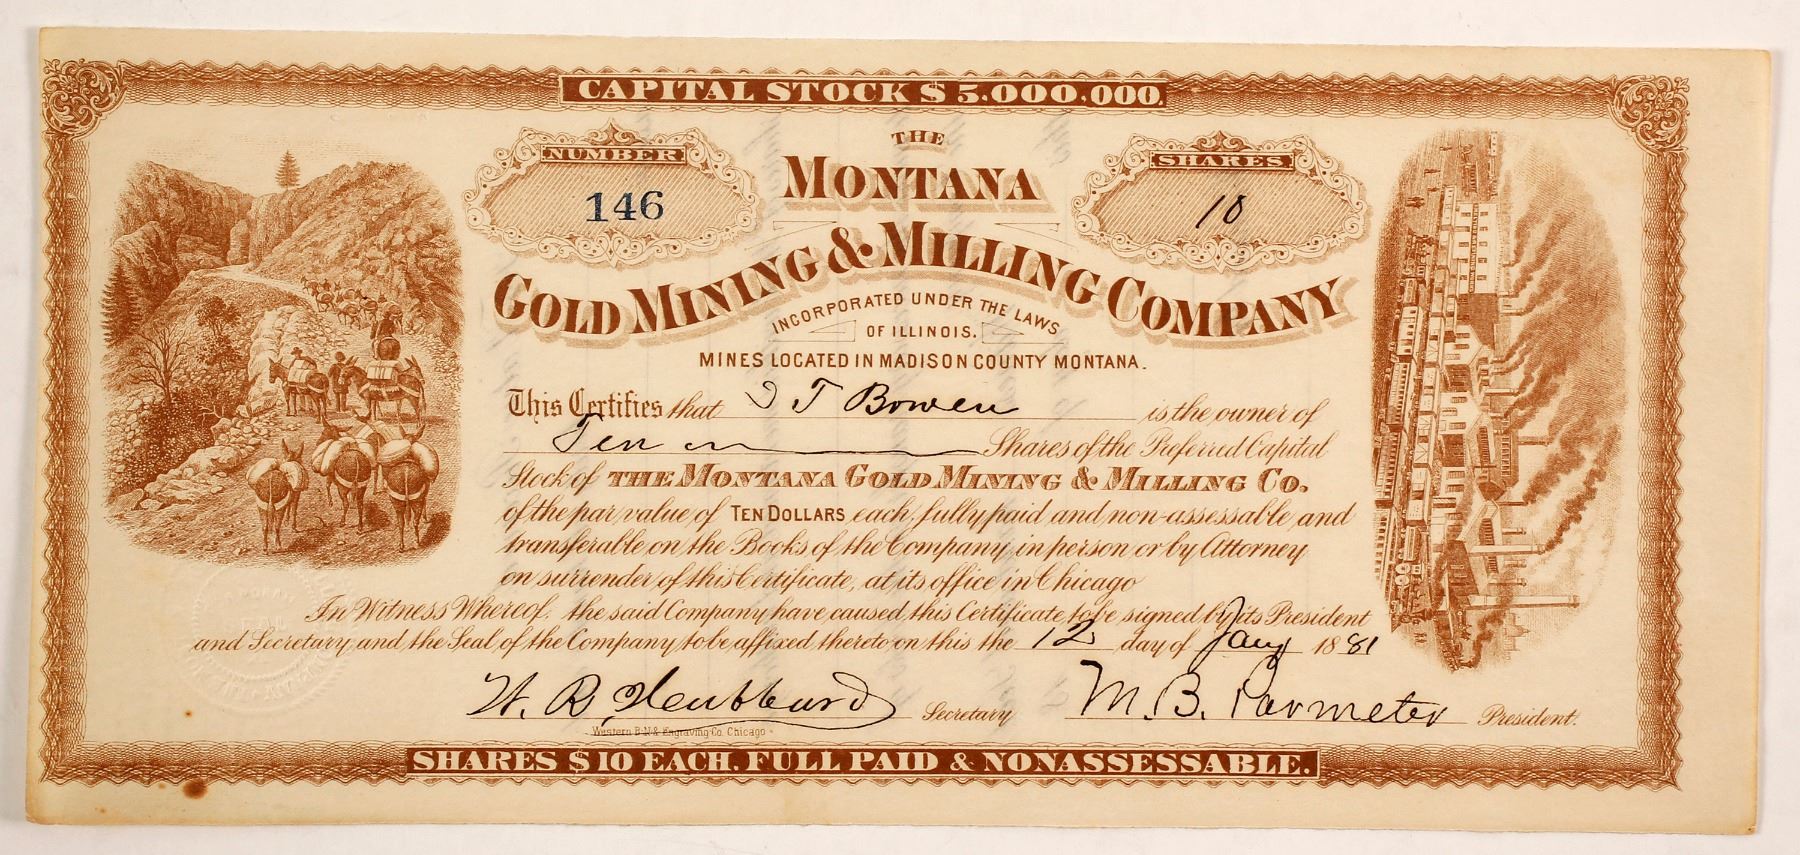 CAPITAL STOCK $5,000,000.
NUMBER
146
THE
MONTANA
SHARES.
10
GOLD MINING & MILLING COMPANY
INCORPORATED UNDER THE LAWS
OF ILLINOIS.
MINES LOCATED IN MADISON COUNTY MONTANA.
This Certifies that T Bowen is the owner of
Ten Shares of the Preferred Capital
Stock of THE MONTANA GOLD MINING & MILLING CO.
of the par value of TEN DOLLARS each, fully paid and non-assessable and
transferable on the Books of the Company, in person or by Attorney
on surrender of this Certificate, at its office in Chicago
In Witness Whereof, the said Company have caused this Certificate to be signed by its President
and Secretary, and the Seal of the Company to be affixed thereto on this the 12 day of Jany 1881
W. B. Hubbard Secretary M. B. Parmeter President.
Western B.N. & Engraving Co. Chicago
SHARES $10 EACH. FULL PAID & NONASSESSABLE.